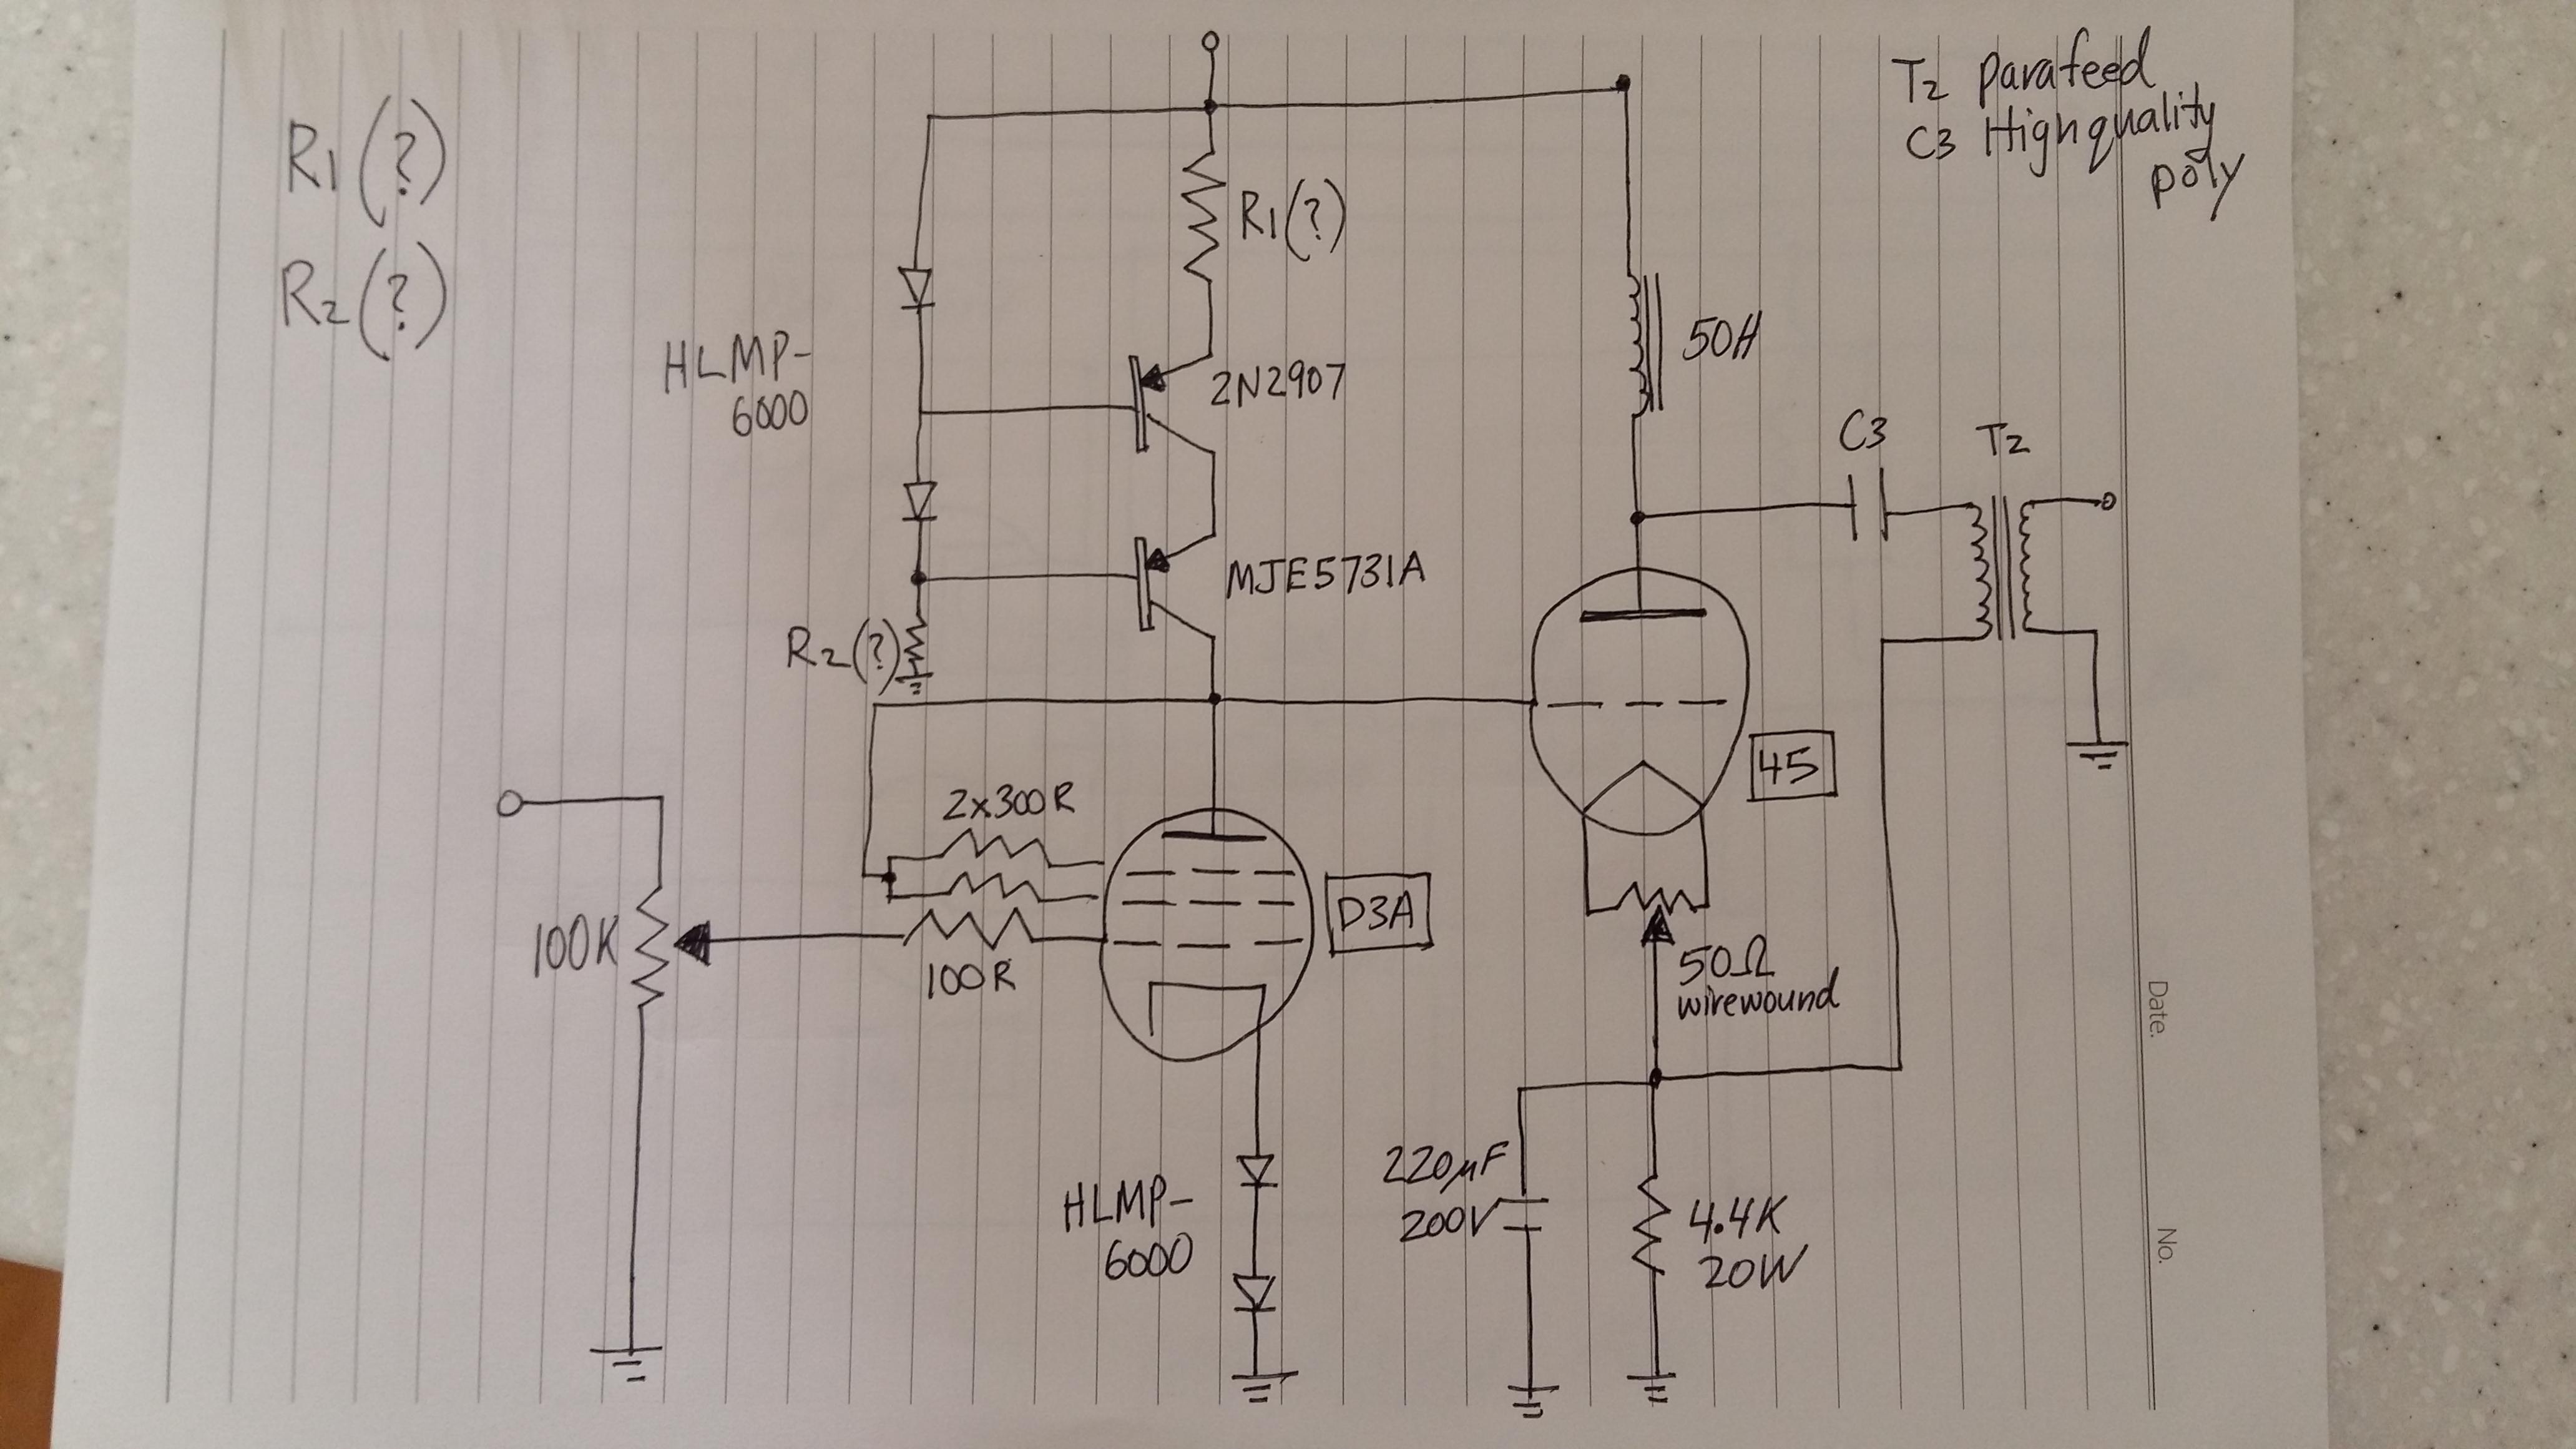 R1 (?)
R2 (?)
T2 parafeed
C3 High quality
poly
R1 (?)
HLMP-
6000
2N2907
50H
C3
T2
MJE5731A
R2 (?)
45
2x300R
100K
100R
D3A
50Ω
wirewound
HLMP-
6000
220μF
200V
4.4K
20W
Date.
No.